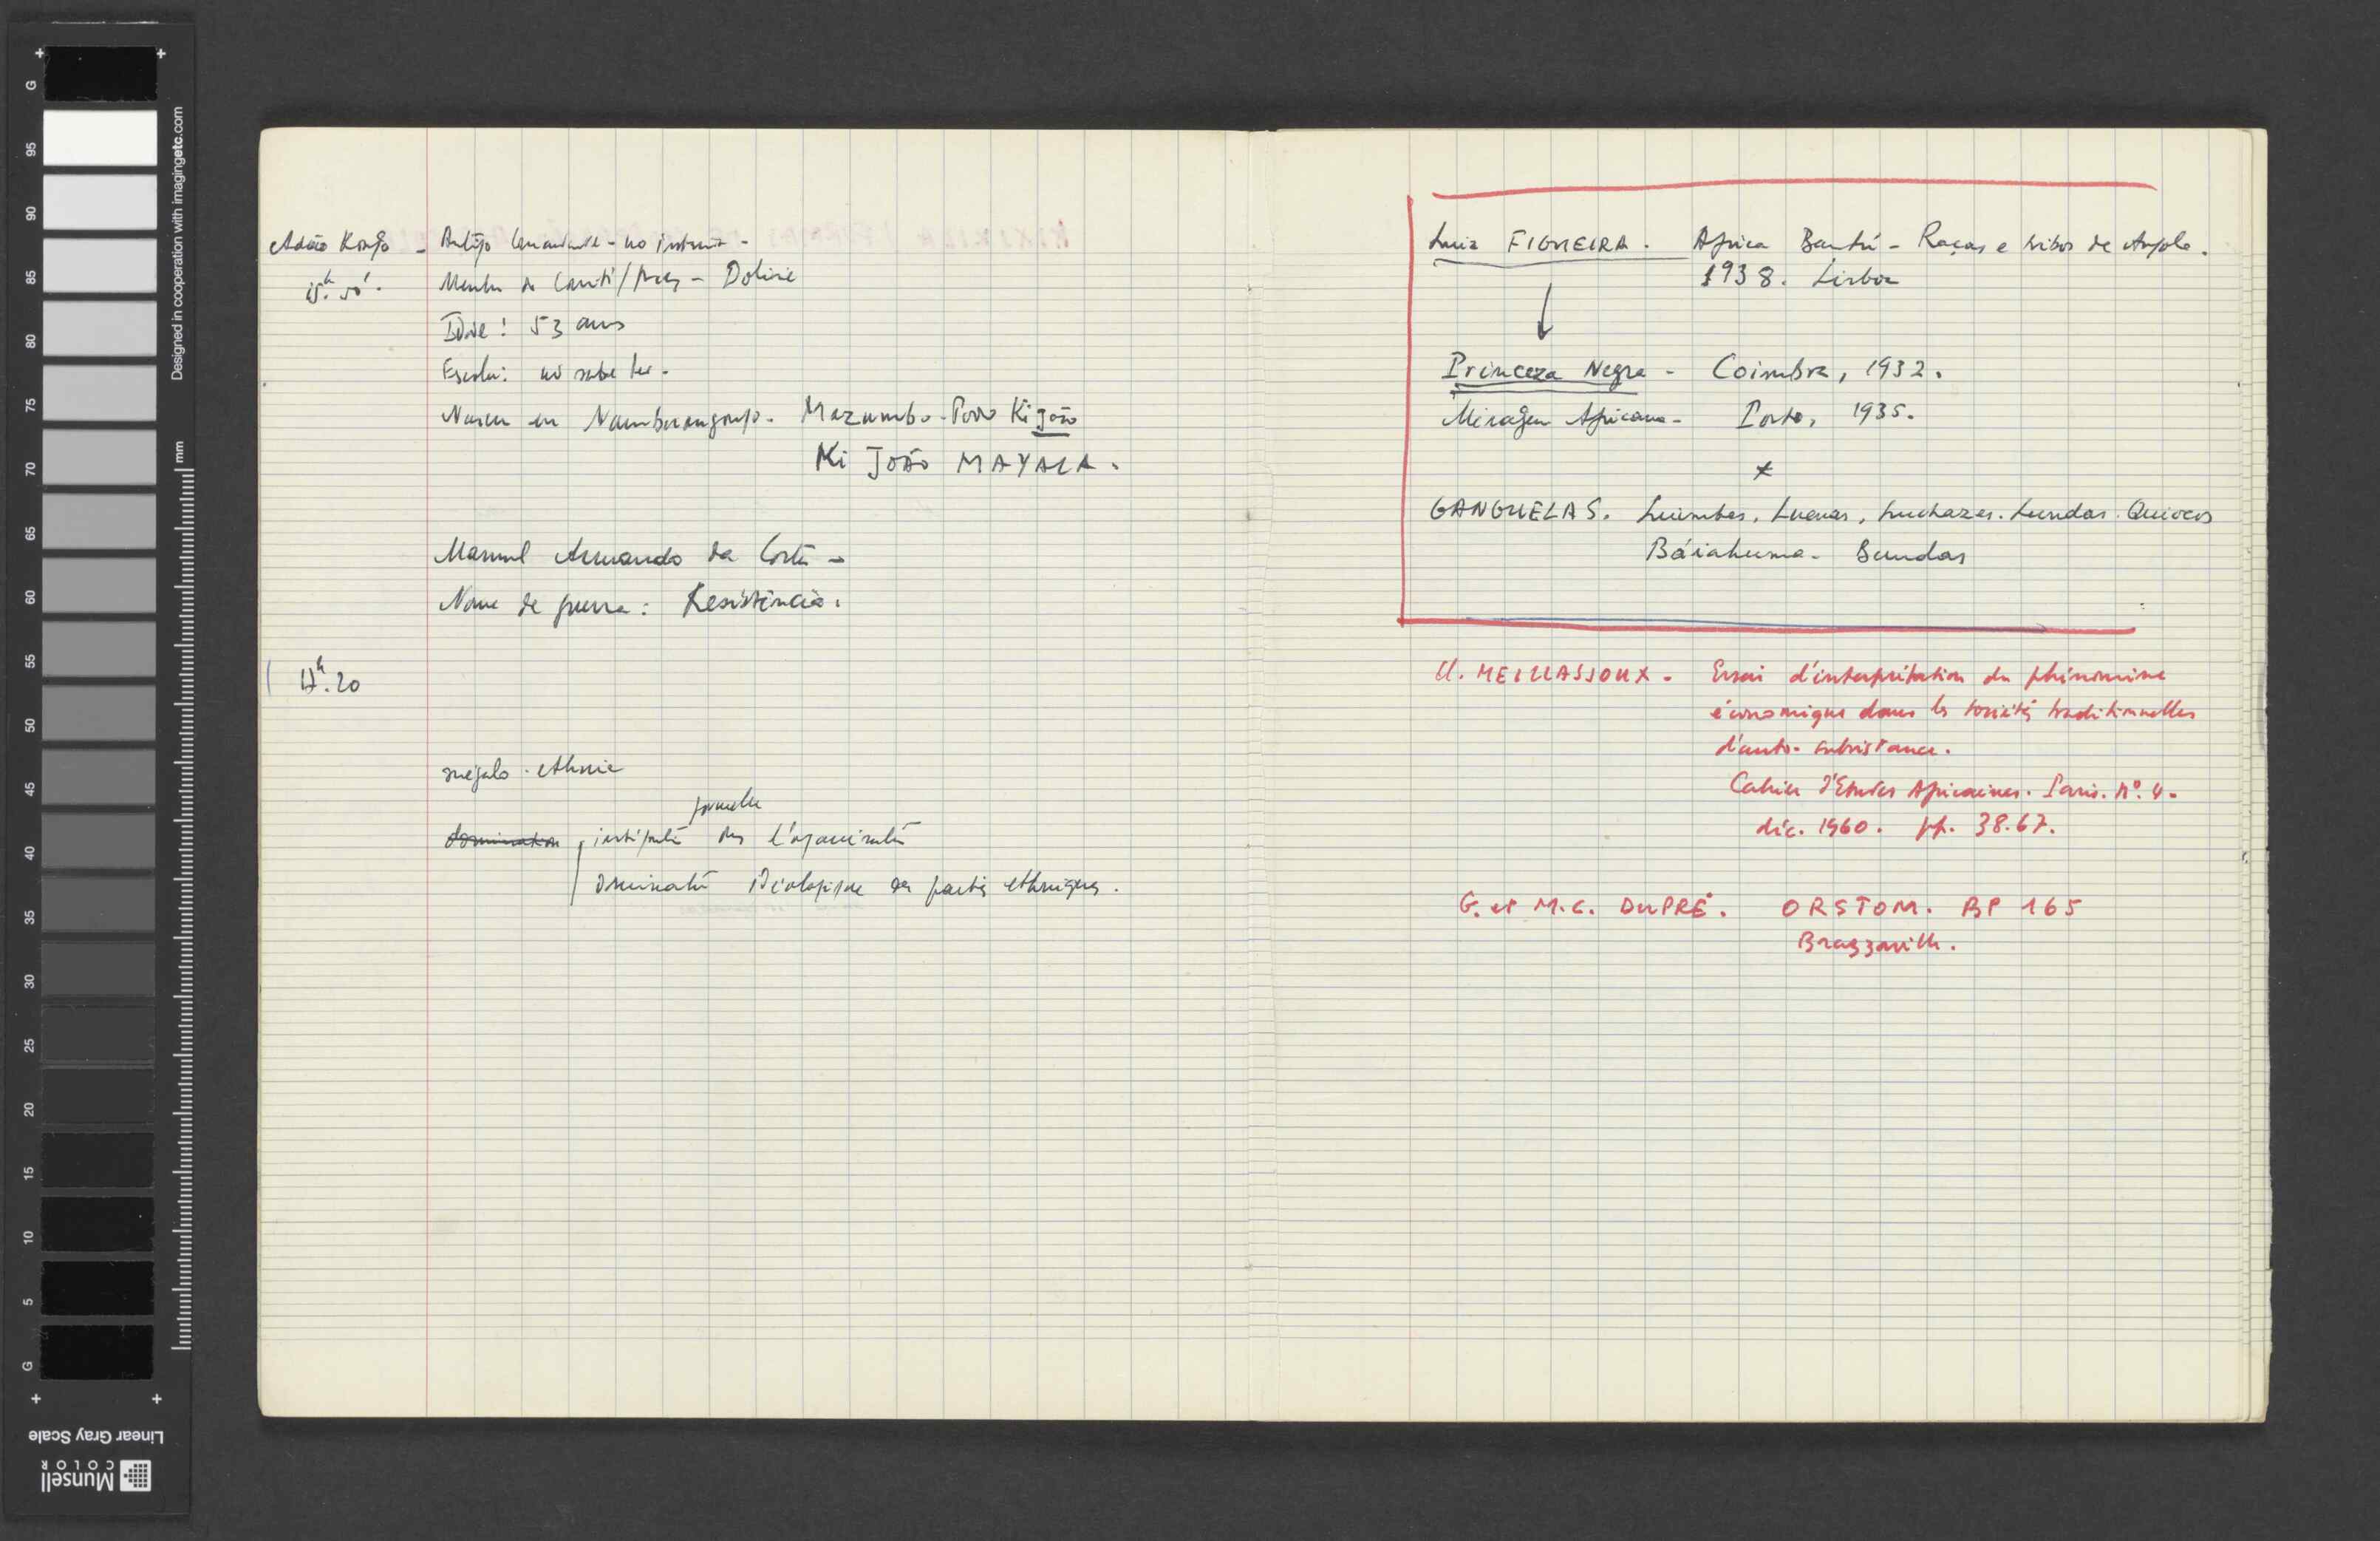 Adão Kongo - Antigo Comandante - no interior -
15h. 50'. Membro do Comité / - Dolisie
Idade : 53 ans
Escola : não sabe ler.
Nasceu em Nambuangongo. Mazumbo - Povo Ki João
Ki JOÃO MAYALA.
Manuel Armando da Costa -
Nome de guerra : Resistência.
17h.20
mégalo-ethnie
formelle
domination l'organisation
idéologique des partis ethniques.
Luiz FIGUEIRA. Africa Bantú - Raças e tribos de Angola.
1938. Lisboa
Princeza Negra - Coimbra, 1932.
Miragem Africana - Porto, 1935.
x
GANGUELAS. Luimbes, Luenas, Luchazes. Lundas. Quiocos
Báiahuma. Bundas
Cl. MEILLASSOUX - Essai d'interprétation du phénomène
économique dans les sociétés traditionnelles
d'auto-subsistance.
Cahier d'Etudes Africaines. Paris. Nº. 4.
déc. 1960. pp. 38.67.
G. et M.C. DUPRÉ. ORSTOM. BP 165
Brazzaville.
G 95 90 85 80 75 70 65 60 55 50 45 40 35 30 25 20 15 10 5 G
Designed in cooperation with imagingetc.com
mm
Linear Gray Scale
Munsell
COLOR